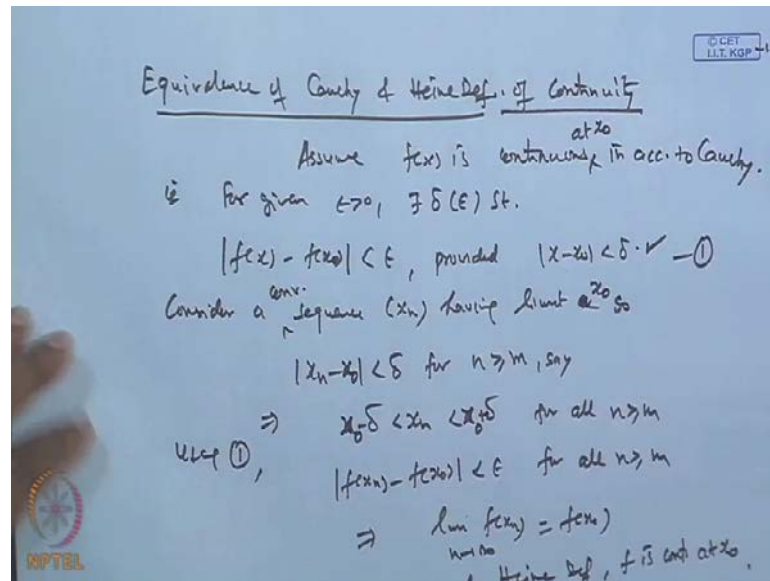 © CET
I.I.T. KGP
Equivalence of Cauchy & Heine Def. of Continuity
Assume f(x) is continuous at x0 in acc. to Cauchy.
ie for given ε>0, ∃ δ(ε) St.
|f(x) - f(x0)| < ε, provided |x-x0| < δ. ✓ — ①
Consider a conv. sequence (xn) having limit x0 so
|xn-x0| < δ for n ≥ m, say
⇒ x0-δ < xn < x0+δ for all n ≥ m
Using ①, |f(xn) - f(x0)| < ε for all n ≥ m
⇒ lim n→∞ f(xn) = f(x0)
Heine Def, f is cont at x0.
NPTEL